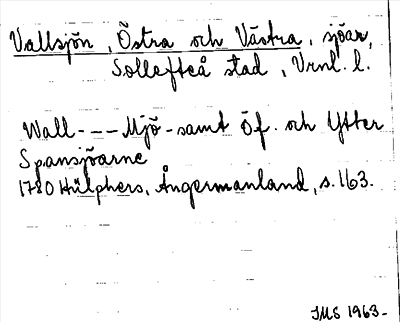 Vallsjön, Östra och Västra, sjöar,
Sollefteå stad, Vrnl. l.
Wall--- Mjö-samt Öf. och Ytter
Spansjöarne
1780 Hülphers, Ångermanland, s. 163.
IMS 1963-